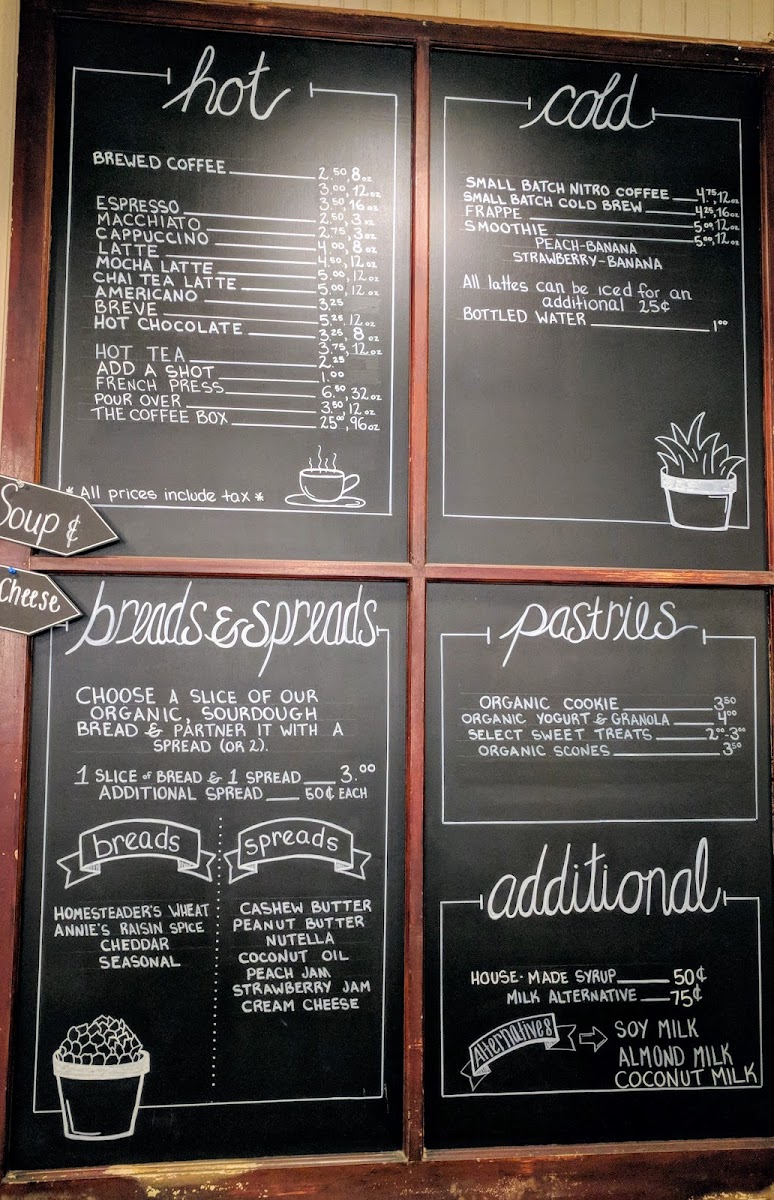 hot
BREWED COFFEE 2.50, 8oz
3.00, 12oz
3.50, 16oz
ESPRESSO 2.50, 3oz
MACCHIATO 2.75, 3oz
CAPPUCCINO 4.00, 8oz
LATTE 4.50, 12oz
MOCHA LATTE 5.00, 12oz
CHAI TEA LATTE 5.00, 12oz
AMERICANO 3.25
BREVE 5.25, 12oz
HOT CHOCOLATE 3.25, 8oz
3.75, 12oz
HOT TEA 2.25
ADD A SHOT 1.00
FRENCH PRESS 6.50, 32oz
POUR OVER 3.50, 12oz
THE COFFEE BOX 25.00, 96oz
*All prices include tax*
Soup &
Cheese
cold
SMALL BATCH NITRO COFFEE 4.75, 12oz
SMALL BATCH COLD BREW 4.25, 16oz
FRAPPE 5.00, 12oz
SMOOTHIE 5.00, 12oz
PEACH-BANANA
STRAWBERRY-BANANA
All lattes can be iced for an
additional 25¢
BOTTLED WATER 1.00
breads & spreads
CHOOSE A SLICE OF OUR
ORGANIC, SOURDOUGH
BREAD & PARTNER IT WITH A
SPREAD (OR 2).
1 SLICE of BREAD & 1 SPREAD 3.00
ADDITIONAL SPREAD 50¢ EACH
breads
HOMESTEADER'S WHEAT
ANNIE'S RAISIN SPICE
CHEDDAR
SEASONAL
spreads
CASHEW BUTTER
PEANUT BUTTER
NUTELLA
COCONUT OIL
PEACH JAM
STRAWBERRY JAM
CREAM CHEESE
pastries
ORGANIC COOKIE 3.50
ORGANIC YOGURT & GRANOLA 4.00
SELECT SWEET TREATS 2.00-3.00
ORGANIC SCONES 3.50
additional
HOUSE-MADE SYRUP 50¢
MILK ALTERNATIVE 75¢
Alternatives
SOY MILK
ALMOND MILK
COCONUT MILK